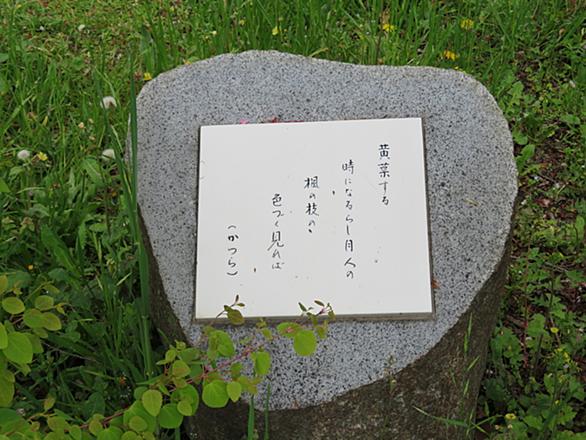 黄葉する
時になるらし月人の
楓の枝の
色づく見れば
（かつら）